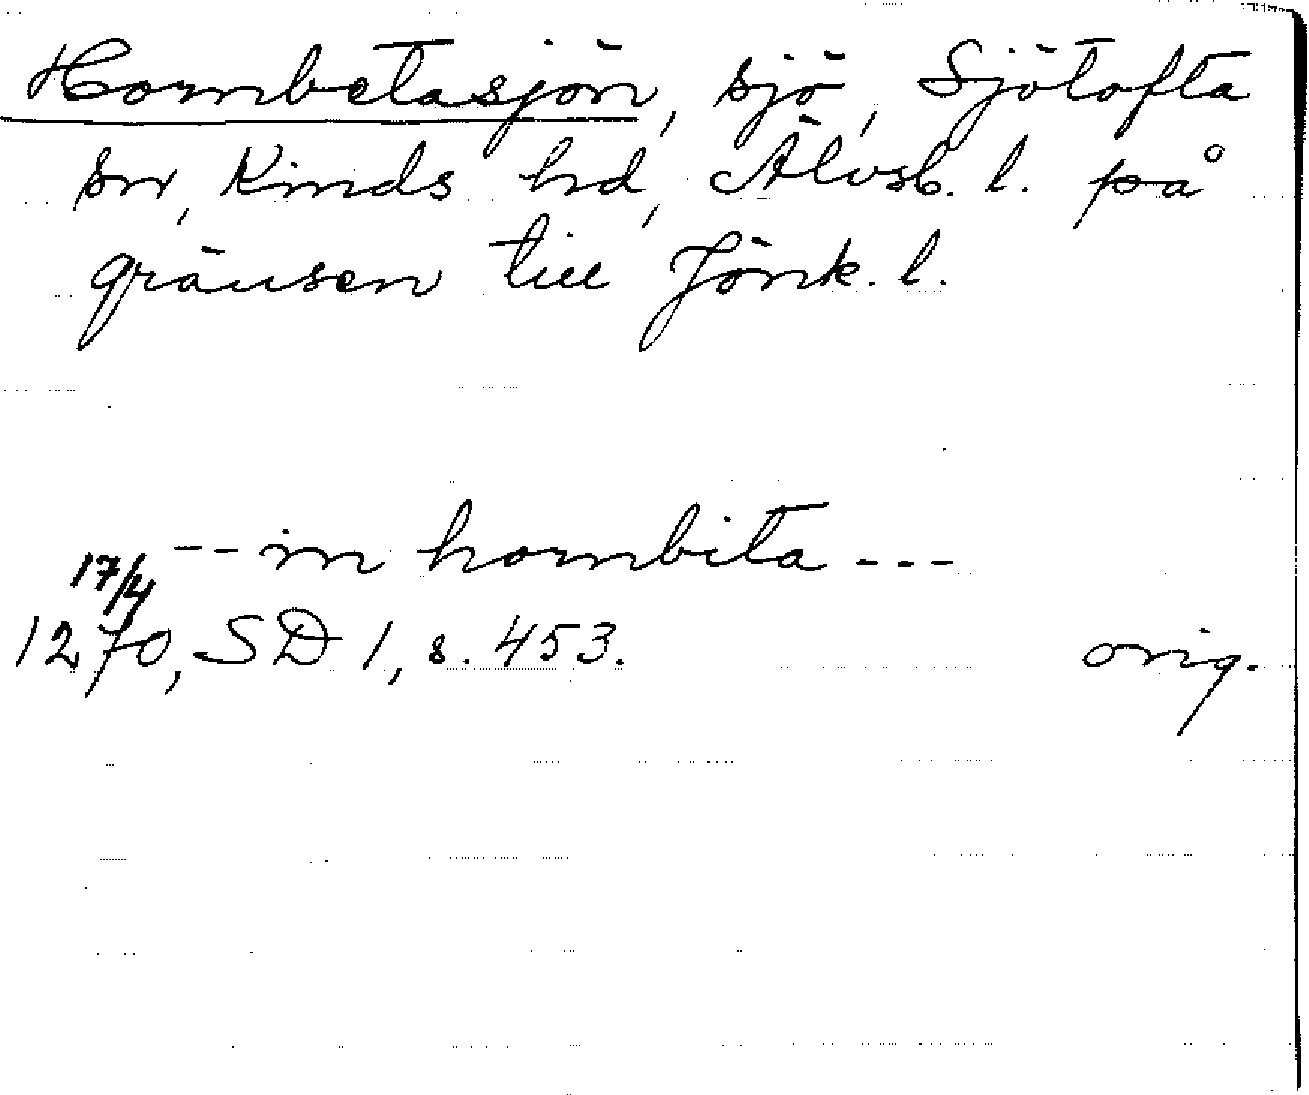 Hornbetasjön, sjö, Sjötofta
sn, Kinds hd, Älvsb. l. på
gränsen till Jönk. l.
-- in hornbita ---
17/4
1270, SD 1, s. 453. orig.